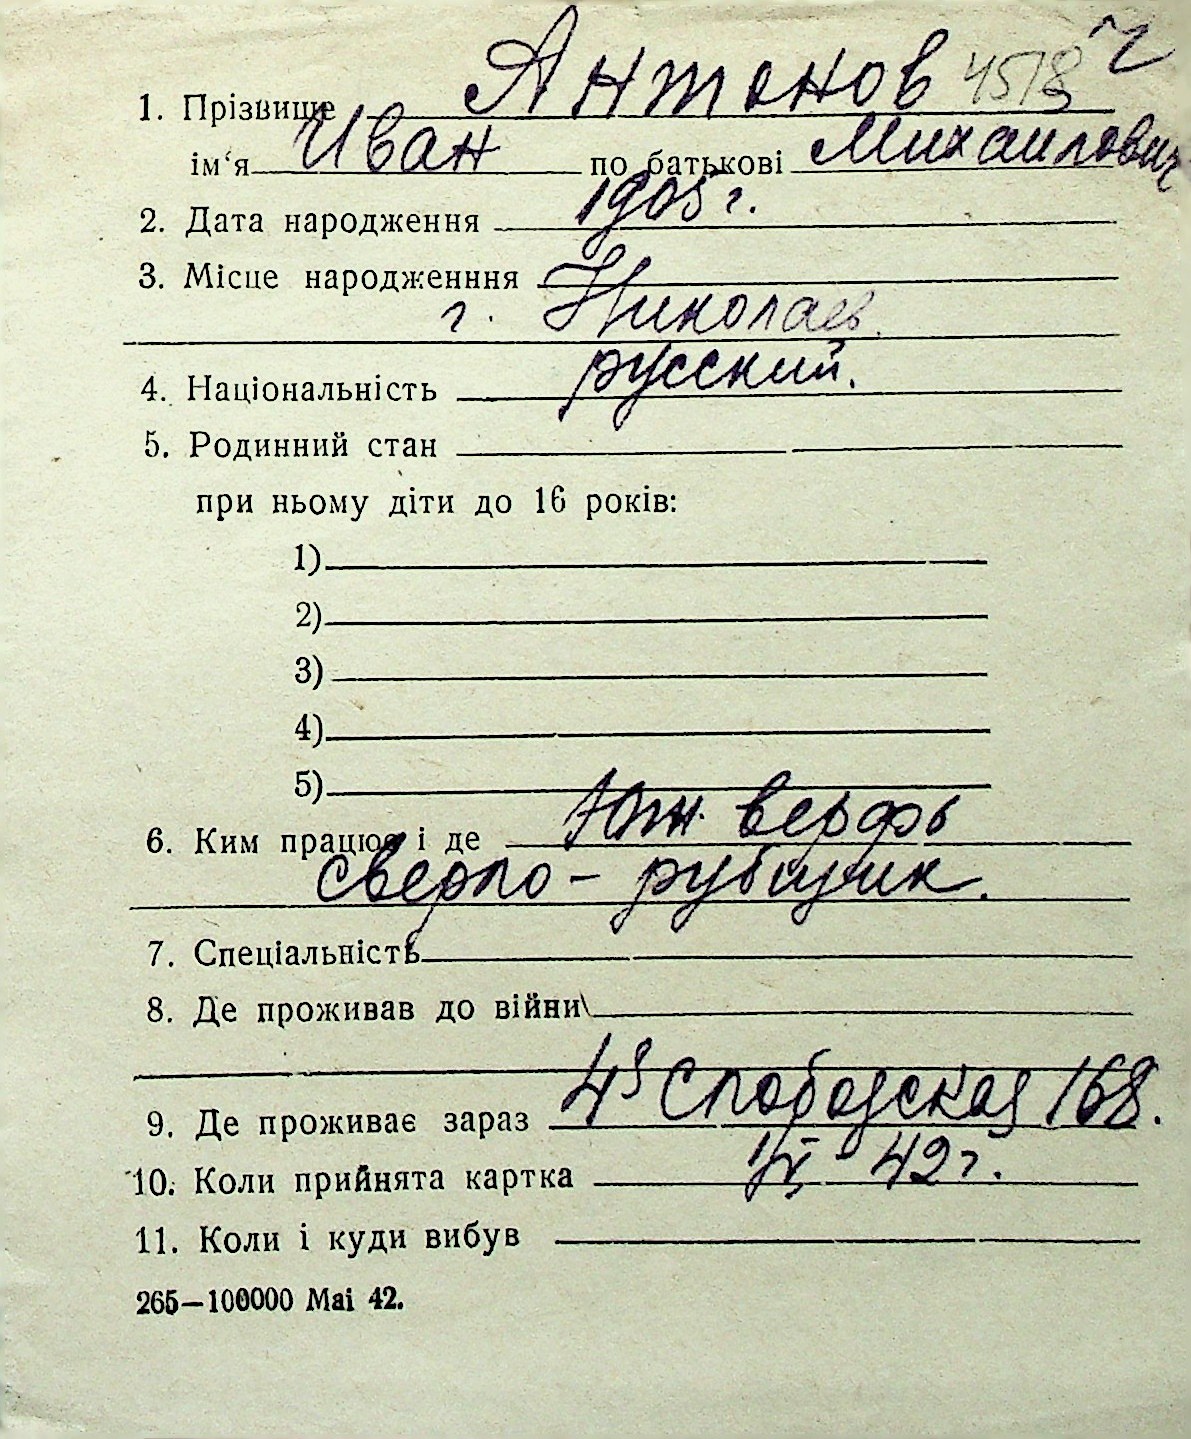 1. Прізвище Антонов 4518
ім‘я Иван по батькові Михаилович
2. Дата народження 1905 г.
3. Місце народженння
г. Николаев.
4. Національність русский.
5. Родинний стан
при ньому діти до 16 років:
1)
2)
3)
4)
5)
6. Ким працює і де Юж. верфь
сверло - рубщик.
7. Спеціальність
8. Де проживав до війни
9. Де проживає зараз 4я Слободская 168.
10. Коли прийнята картка 42 г.
11. Коли і куди вибув
265—100000 Mai 42.